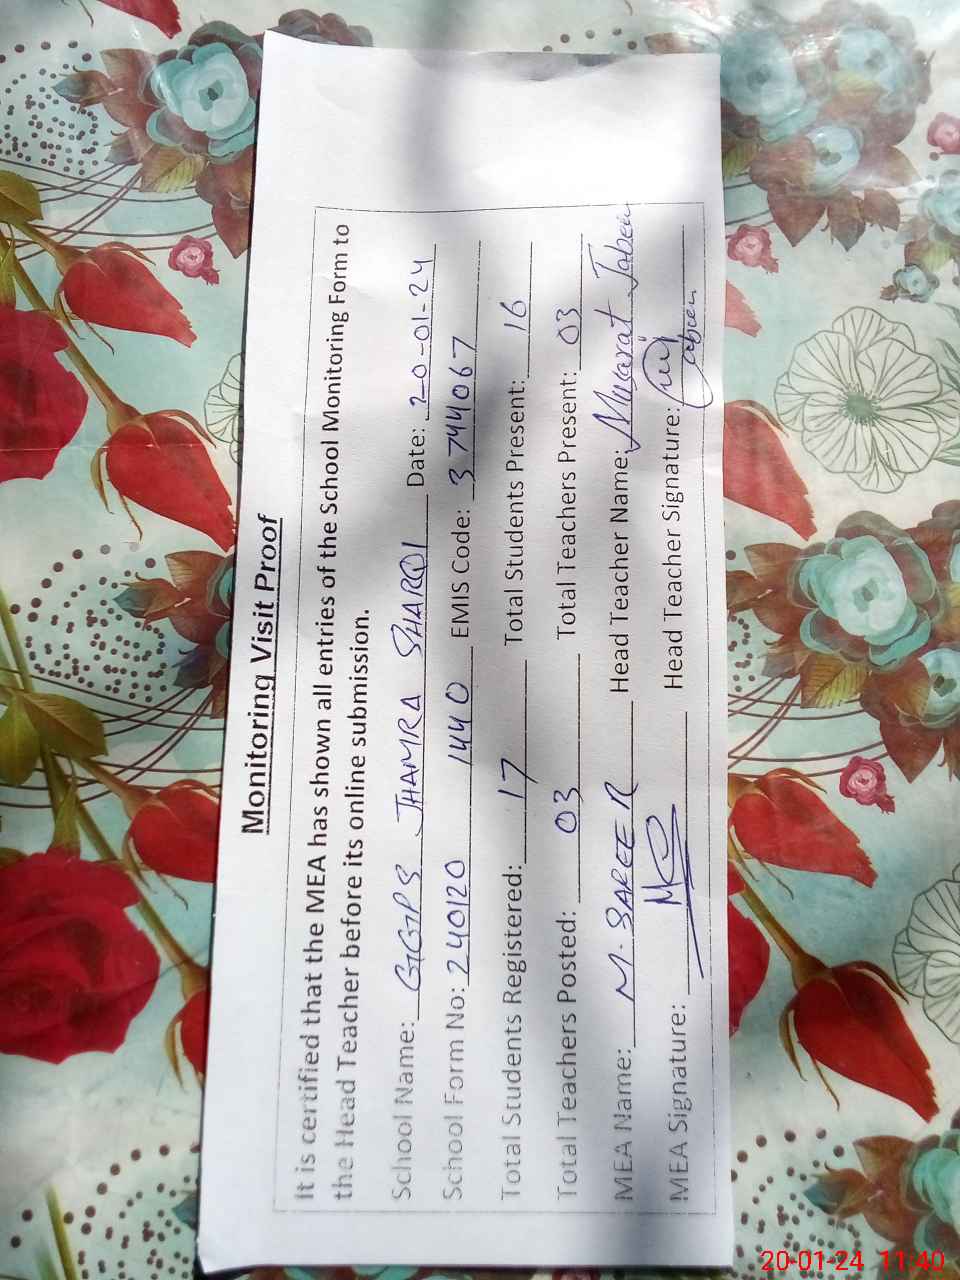 Monitoring Visit Proof
It is certified that the MEA has shown all entries of the School Monitoring Form to
the Head Teacher before its online submission.
School Name: GGPS JHAMRA SHARQI Date: 20-01-24
School Form No: 240120 1440 EMIS Code: 3744067
Total Students Registered: 17 Total Students Present: 16
Total Teachers Posted: 03 Total Teachers Present: 03
MEA Name: M. SAREER Head Teacher Name: Musarat Jabeen
MEA Signature: Head Teacher Signature: Jabeen
20-01-24 11:40